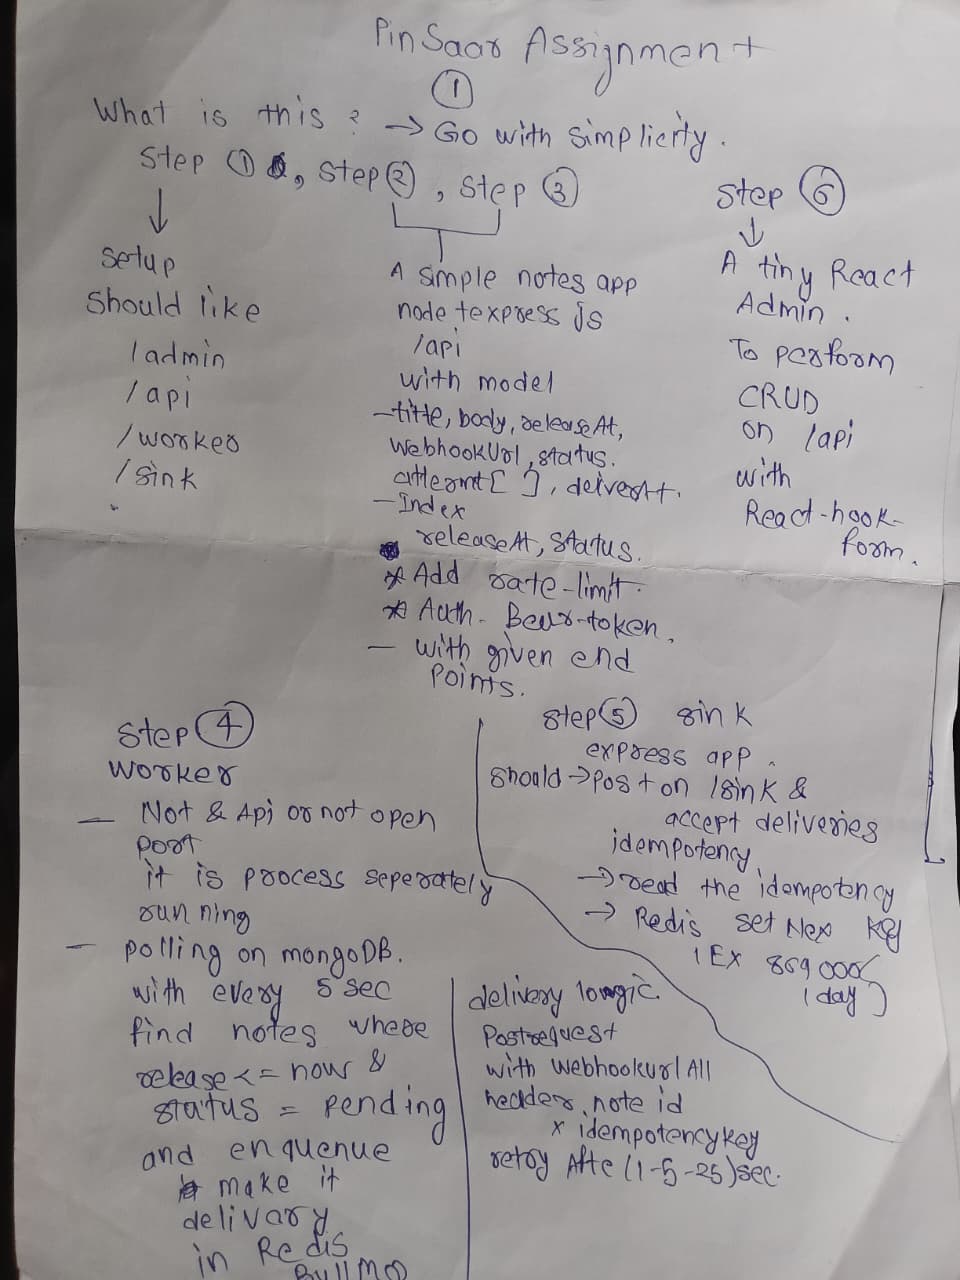 PinSaar Assignment
①
What is this ? → Go with simplicity.
Step ① , Step ② , Step ③
↓
setup
should like
/admin
/api
/worker
/sink
A simple notes app
node + express js
/api
with model
- title, body, releaseAt,
WebhookUrl, status.
attemt [ ], deiverAt.
- Index
releaseAt, status.
* Add rate-limit.
* Auth- Bear-token.
- with given end
points.
Step ⑥
↓
A tiny React
Admin.
To perform
CRUD
on /api
with
React-hook-
form.
Step ④
Worker
- Not & Api or not open
port
it is process seperately
running
- polling on mongoDB.
with every 5 sec
find notes where
release <= now &
status = pending
and enquenue
make it
delivary
in Redis
BullMQ
Step ⑤ sink
express app.
should → post on /sink &
accept deliveries
idempotency
→ read the idempotency
→ Redis set Nex Key
1 EX
(day)
delivery logic
Postrequest
with webhookurl All
header, note id
x idempotencykey
retry Afte (1-5-25)sec.